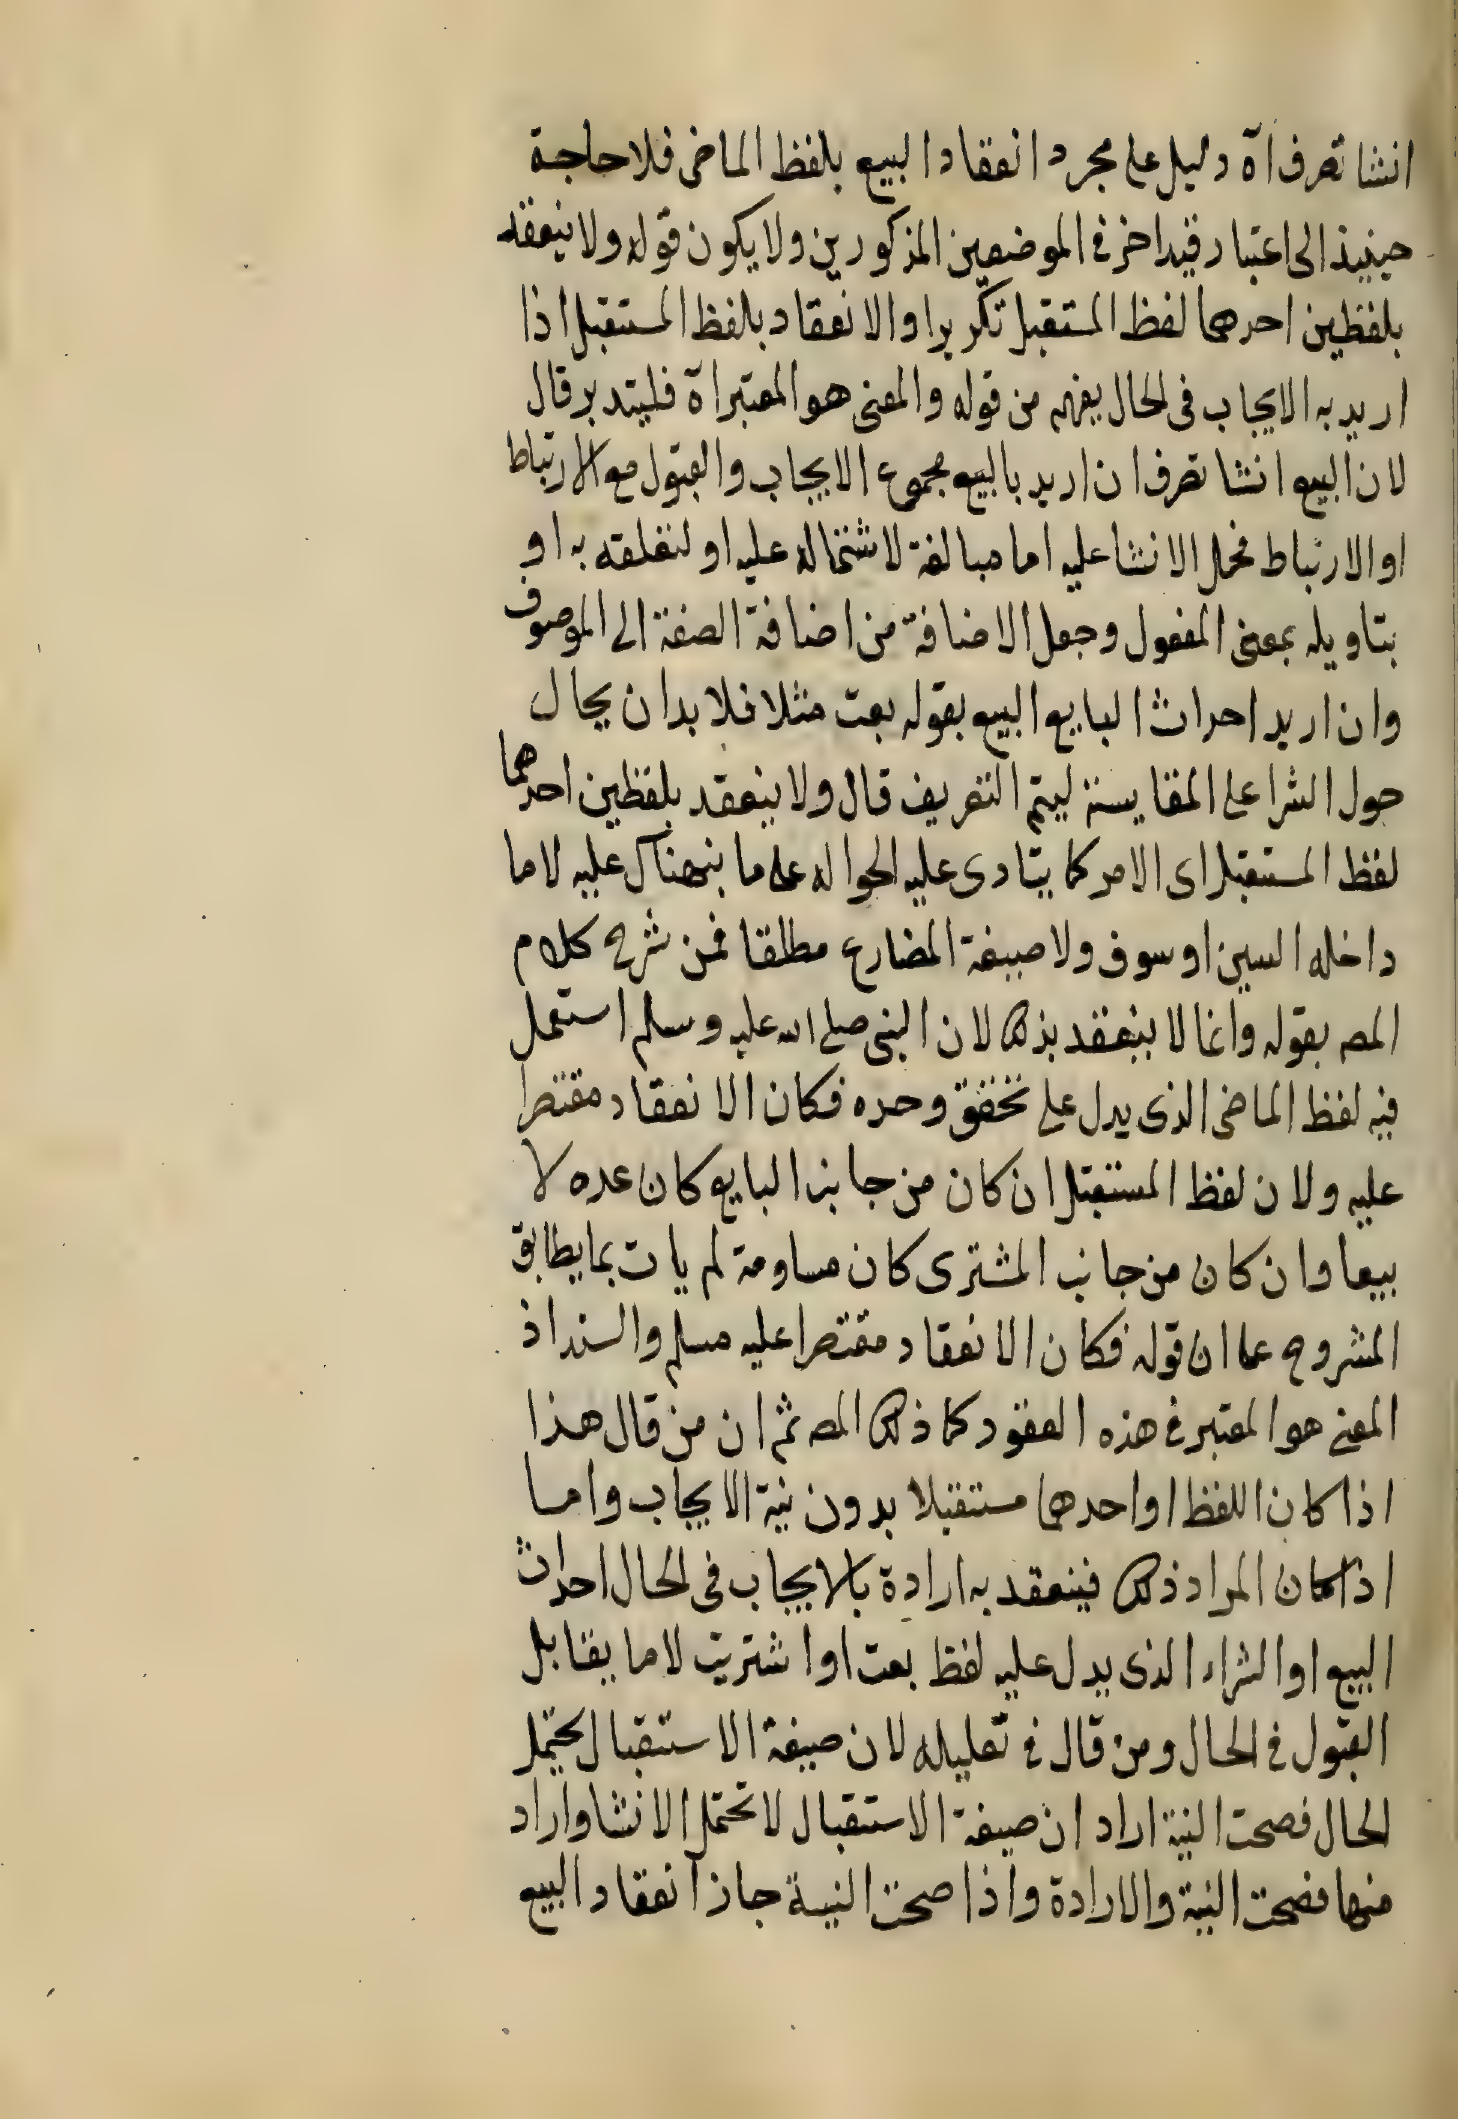 انشا تصرف آه دليل على مجرد انعقاد البيع بلفظ الماضى فلا حاجة
حينيذ الى اعتبار قيد اخر فى الموضعين المذكورين ولا يكون قوله ولا ينعقد
بلفظين احدهما لفظ المستقبل تكريرا والانعقاد بلفظ المستقبل اذا
اريد به الايجاب فى الحال يفهم من قوله والمعنى هو المعتبر آه فليتدبر قال
لان البيع انشا تصرف ان اريد بالبيع مجموع الايجاب والقبول مع الارتباط
او الارتباط فحمل الانشا عليه اما مبالغة لاشتماله عليه او لتعلقه به او
بتاويله بمعنى المفعول وجعل الاضافة من اضافة الصفة الى الموصوف
وان اريد احداث البايع البيع بقوله بعت مثلا فلا بد ان يحال
حول الشرا على المقايسة ليتم التعريف قال ولا ينعقد بلفظين احدهما
لفظ المستقبل اى الامر كما يتادى عليه الحواله على ما بنهناك عليه لا ما
داخله السين او سوف ولا صيغة المضارع مطلقا فمن شرح كلام
المص بقوله وانما لا ينعقد بذلك لان النبى صلى الله عليه وسلم استعمل
فيه لفظ الماضى الذى يدل على تحقق وحده فكان الانعقاد مقتصرا
عليه ولان لفظ المستقبل ان كان من جانب البايع كان عده لا
بيعا وان كان من جانب المشترى كان مساومة لم يات بما يطابق
المشروح على ان قوله فكان الانعقاد مقتصرا عليه مسلم والسند اذ
المعنى هو المعتبر فى هذه العقود كما ذلك المص ثم ان من قال هذا
اذا كان اللفظ او احدهما مستقبلا بدون نية الايجاب واما
اذا كان المراد ذلك فينعقد به ارادة بالايجاب فى الحال احداث
البيع او الشراء الذى يدل عليه لفظ بعت او اشتريت لا ما يقابل
القبول فى الحال ومن قال فى تعليله لان صيغة الاستقبال يحتمل
الحال فصحت النية اراد ان صيغة الاستقبال لا تحتمل الانشا واراد
منها فصحت النية والارادة واذا صحت النية جاز انعقاد البيع